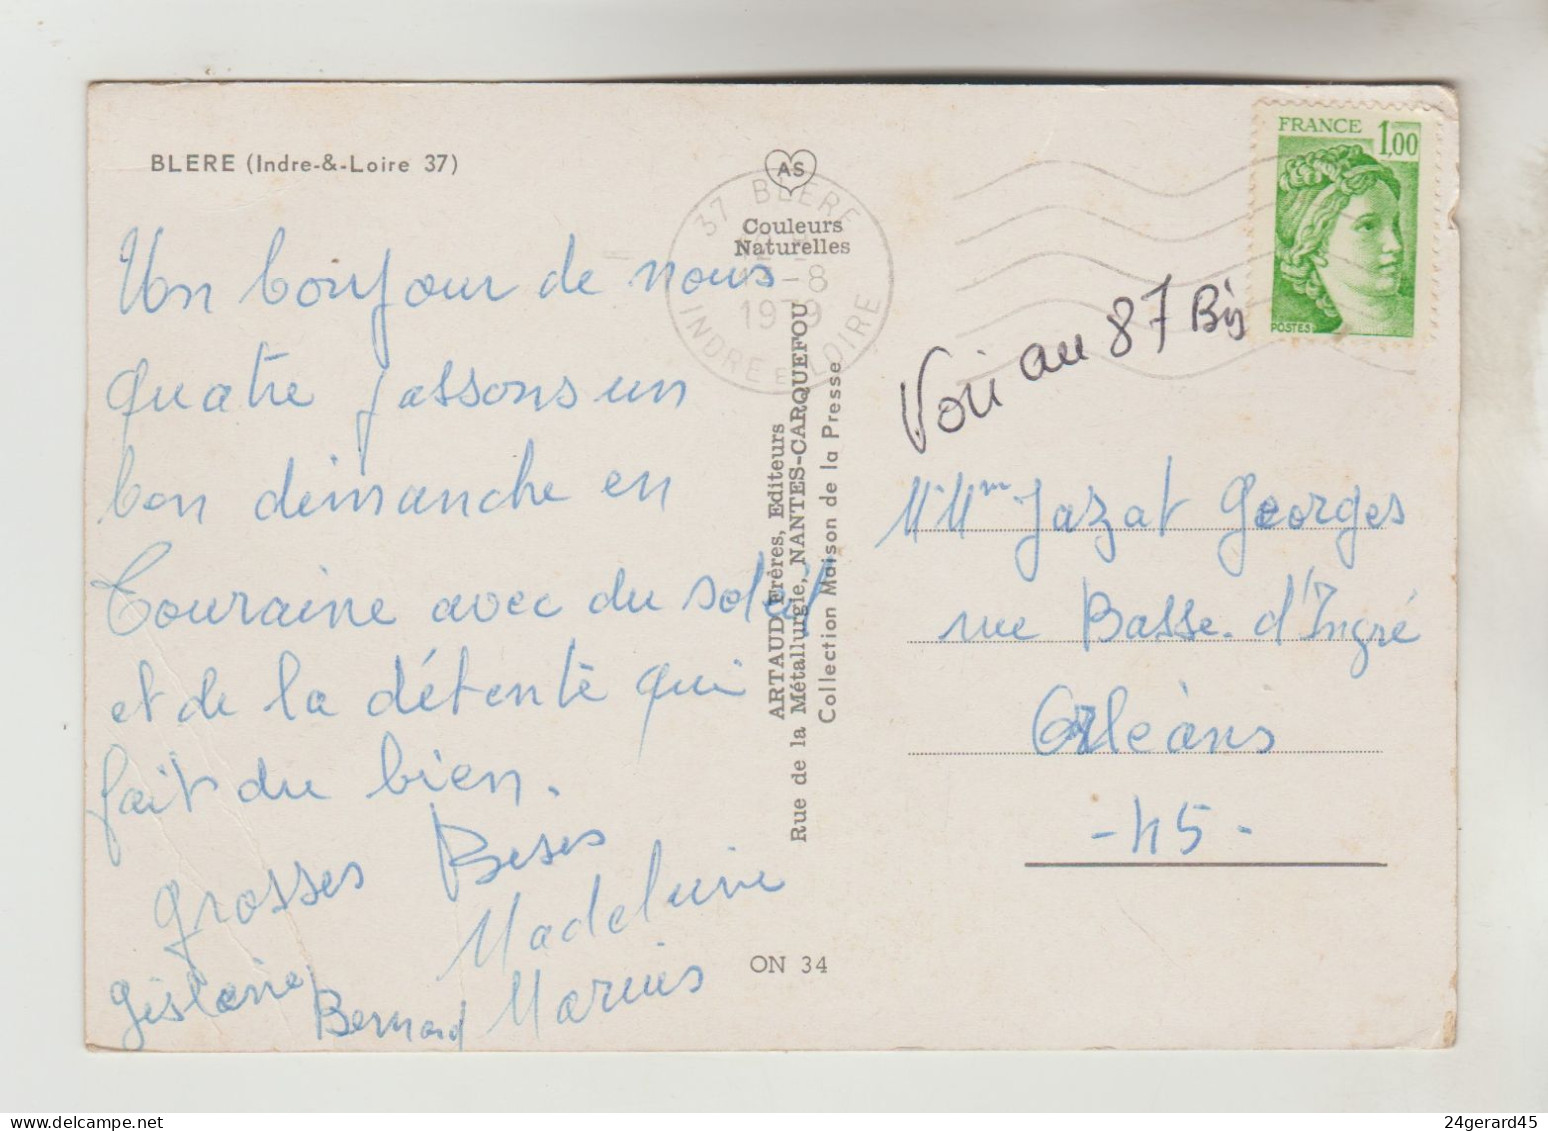 BLERE (Indre-&-Loire 37)
Un bonjour de nous
quatre passons un
bon dimanche en
Touraine avec du soleil
et de la détente qui
fait du bien.
Grosses Bises
Madeleine
Gislaine Bernard Marius
AS
Couleurs
Naturelles
37 BLERE
-8
1979
INDRE ET LOIRE
ARTAUD Frères, Editeurs
Rue de la Métallurgie, NANTES-CARQUEFOU
Collection Maison de la Presse
ON 34
FRANCE 1,00
POSTES
Voir au 87 Bis
M. Mme Jazat Georges
rue Basse d'Ingré
Orléans
- 45 -
24gerard45